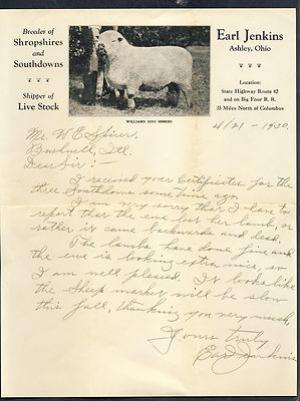 Breeder of
Shropshires
and
Southdowns
Shipper of
Live Stock
Earl Jenkins
Ashley, Ohio
Location:
State Highway Route 42
and on Big Four R. R.
25 Miles North of Columbus
4/21-1930.
Mr. W E Spicer,
Bushnell, Ill.
Dear Sir:-
I received your Certificates for the
three Southdowns some time ago.
I am very sorry that I have to
report that the ewe lost her lamb, or
rather it came backwards and dead.
The lambs have done fine and
the ewe is looking extra nice, so
I am well pleased. It looks like
the sheep market will be slow
this fall, thanking you very much,
Yours truly
Earl Jenkins